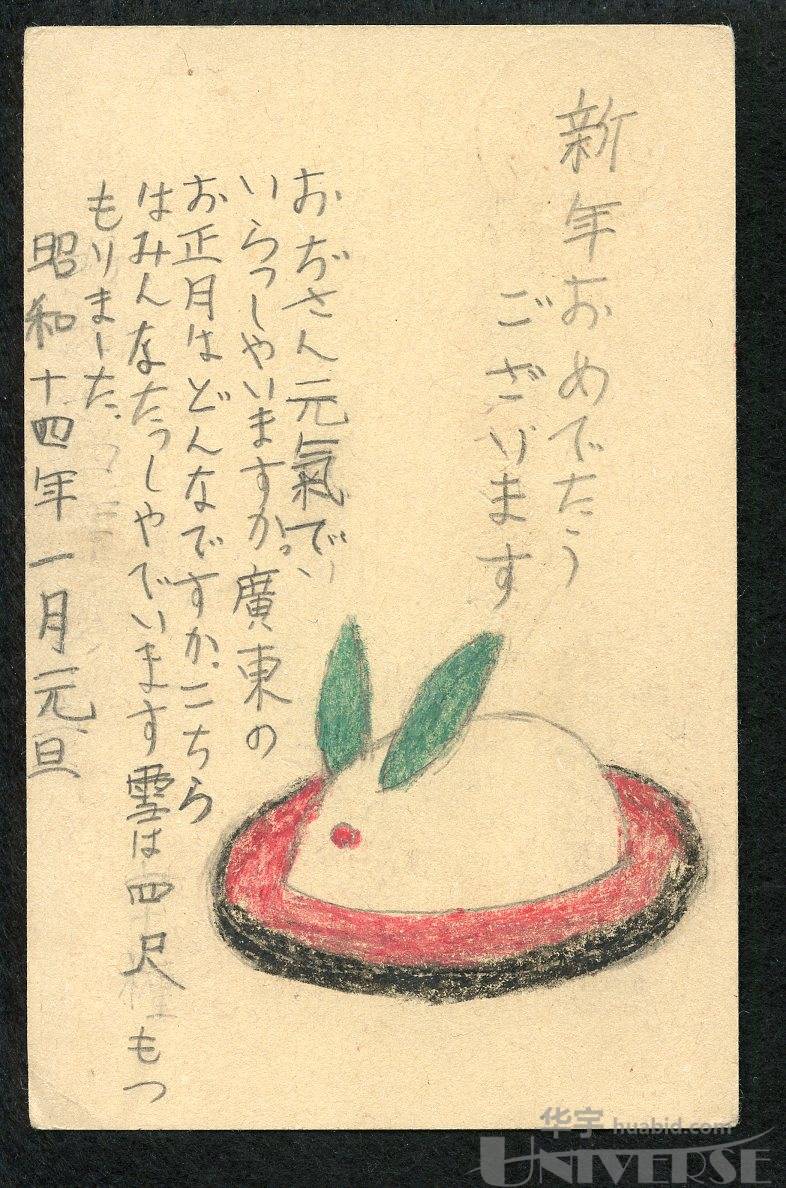 新年おめでたう
ございます
おぢさん元氣でい
いらっしやいますか。廣東の
お正月はどんなですか。こちら
はみんなたっしやでいます雪は四尺もつ
もりました、
昭和十四年一月元旦
华宇 huabid.com
UNIVERSE